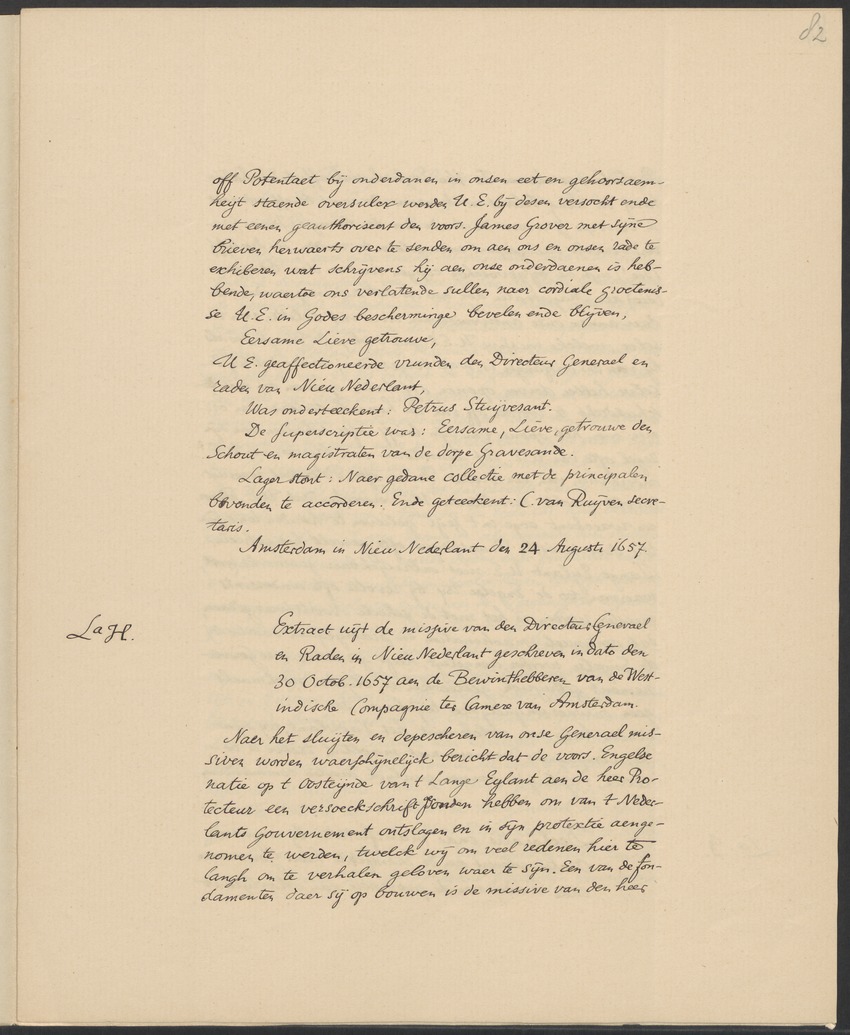 82
off Potentaet bij onderdanen in onsen eet en gehoorsaem-
heijt staende oversulcx werden U. E. bij desen versocht ende
met eenen geauthoriseert den voors. James Grover met sijne
brieven herwaerts over te senden om aen ons en onsen rade te
exhiberen wat schrijvens hij aen onse onderdaenen is heb-
bende, waertoe ons verlatende sullen naer cordiale groetenis-
se U. E. in Godes bescherminge bevelen ende blijven,
Eersame Lieve getrouwe,
U E. geaffectioneerde vrunden den Directeur Generael en
raden van Nieu Nederlant,
Was onderteeckent: Petrus Stuijvesant.
De superscriptie was: Eersame, Lieve, getrouwe den
Schout en magistraten van de dorpe Gravesande.
Lager stont: Naer gedane collectie met de principalen
bevonden te accorderen. Ende geteeckent: C. van Ruijven secre-
taris.
Amsterdam in Nieu Nederlant den 24 Augusti 1657
La H.
Extract uijt de missive van den Directeur Generael
en Raden in Nieu Nederlant geschreven in dato den
30 Octob. 1657 aen de Bewinthebberen van de West-
indische Compagnie ter Camere van Amsterdam.
Naer het sluijten en depescheren van onse Generael mis-
siven worden waerschijnelijck bericht dat de voors. Engelse
natie op t Oosteijnde van t Lange Eylant aen de heer Pro-
tecteur een versoeckschrift sonden hebben om van t Neder-
lants Gouvernement ontslagen en in sijn protextie aenge-
nomen te werden, twelck wij om veel redenen hier te
langh om te verhalen geloven waer te sijn. Een van de fon-
damenten daer sij op bouwen is de missive van den heer